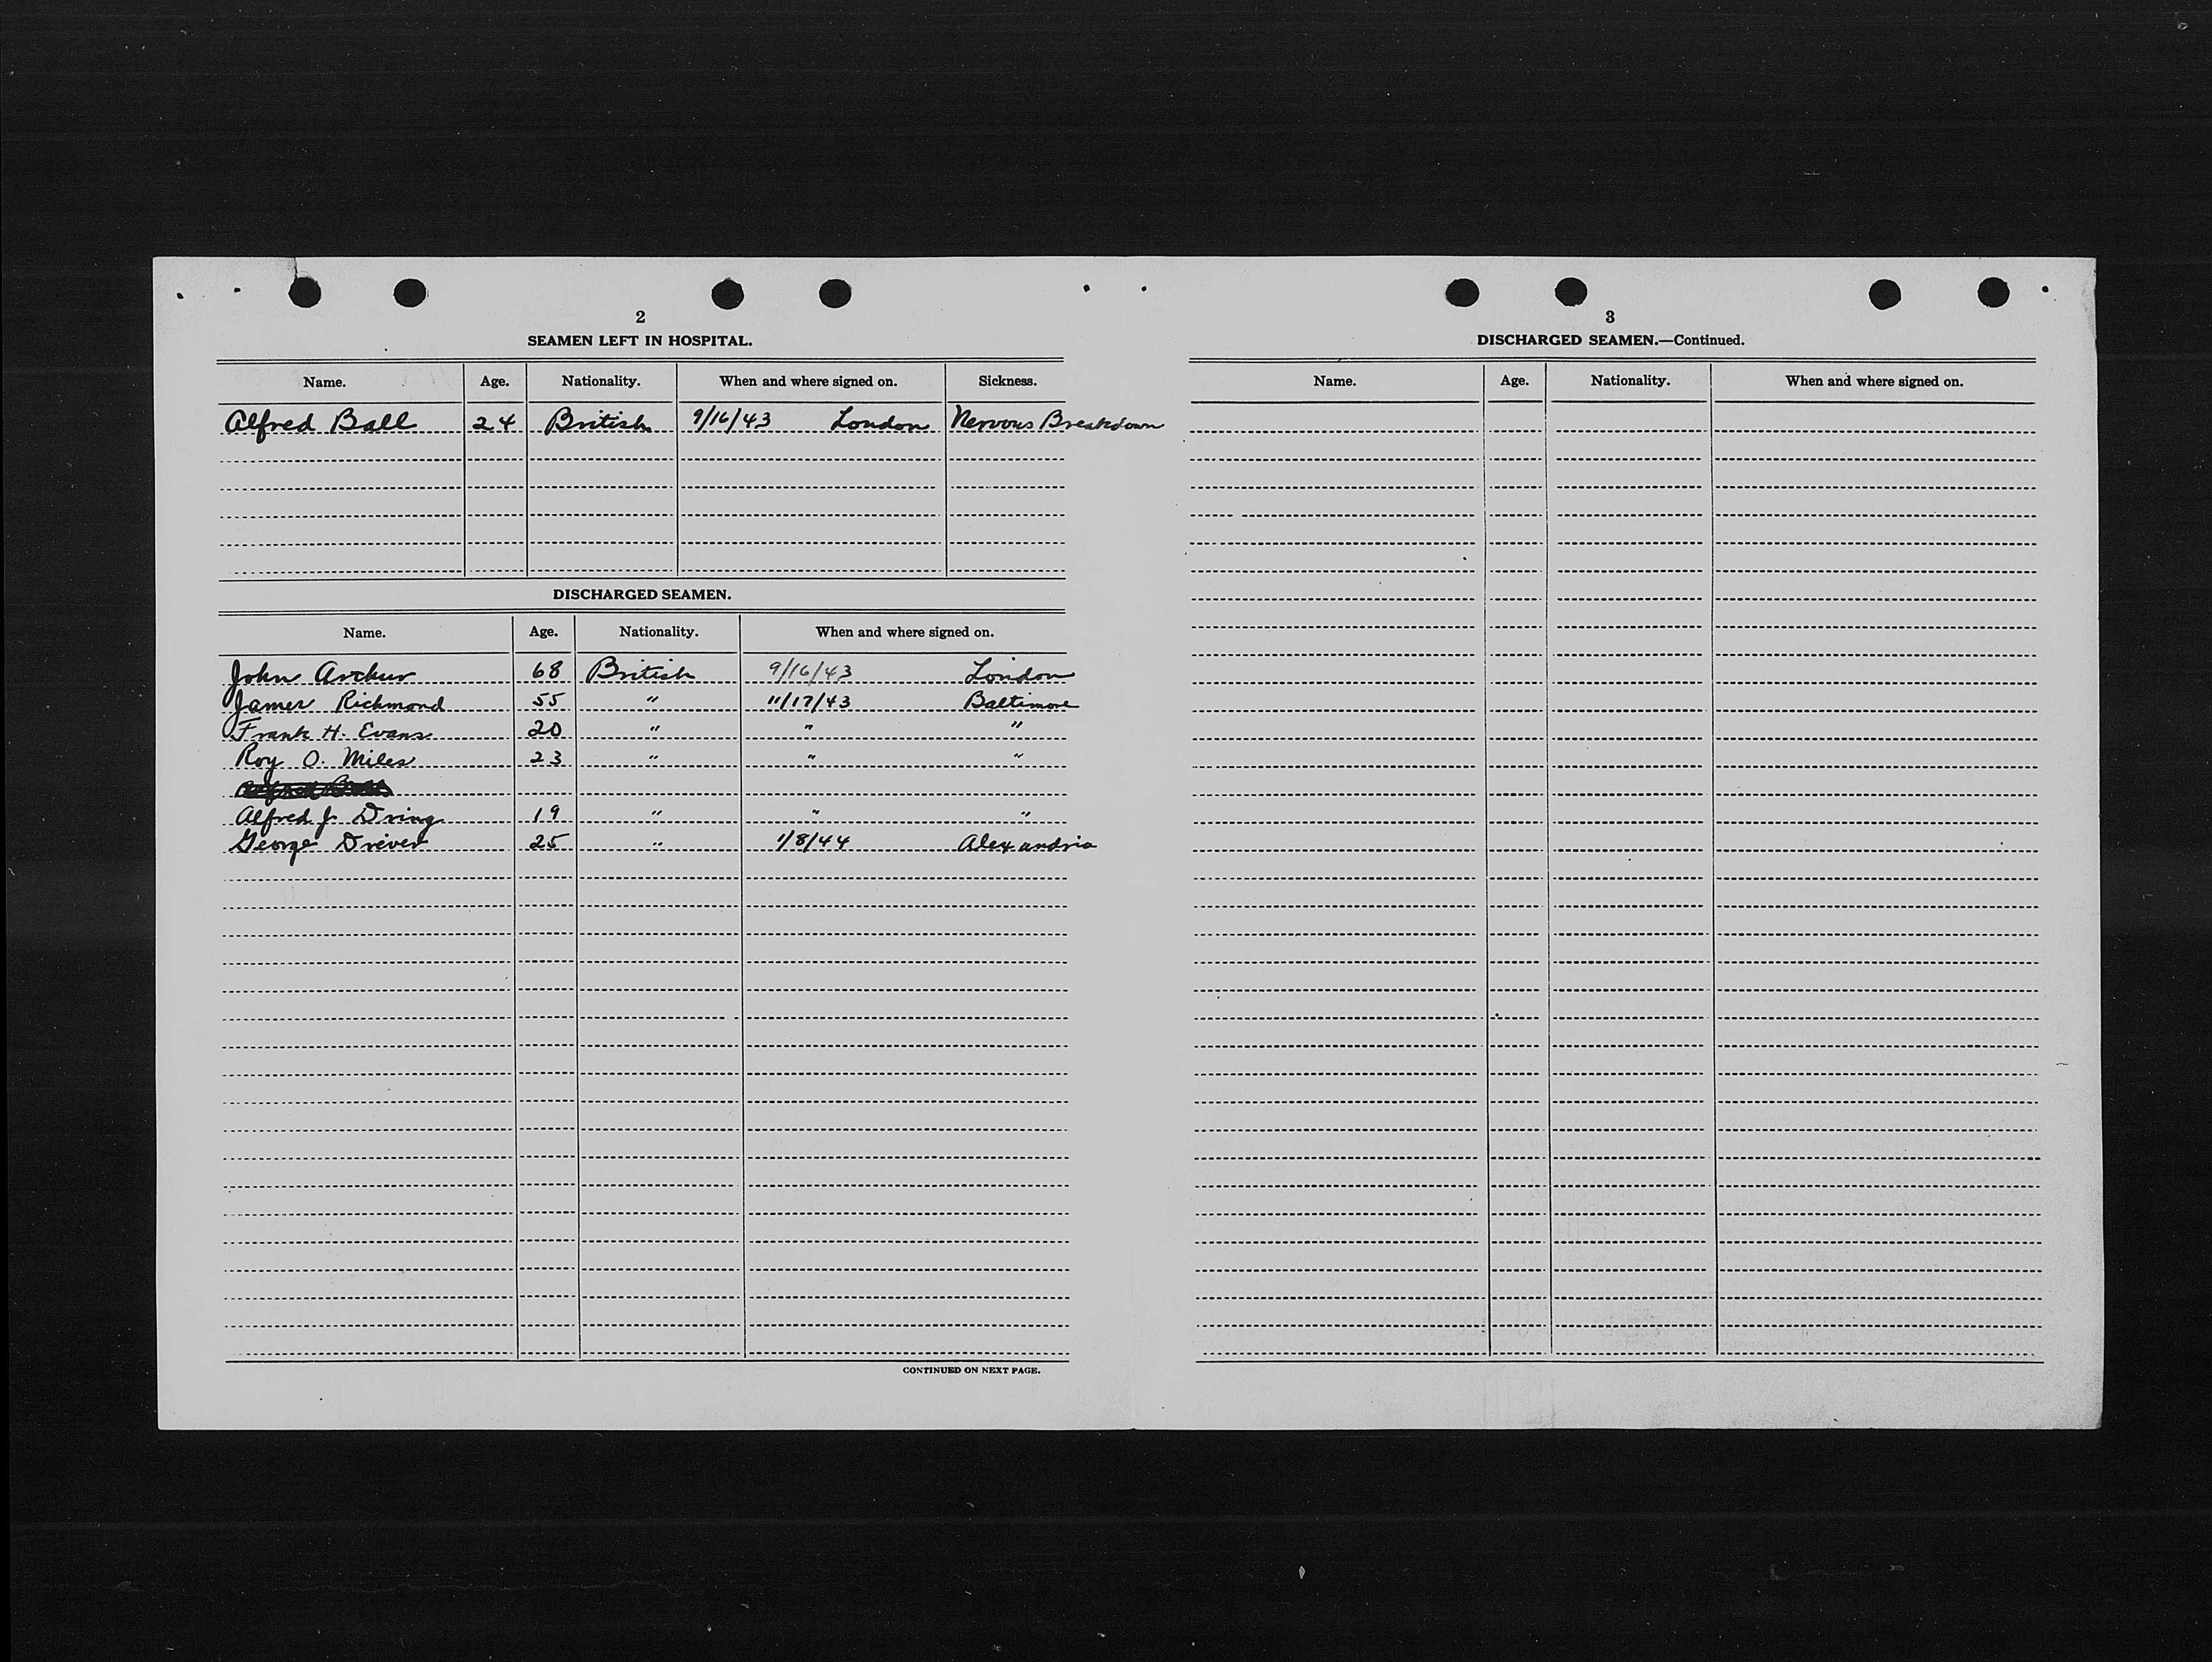 2
SEAMEN LEFT IN HOSPITAL.
Name. Age. Nationality. When and where signed on. Sickness.
Alfred Ball 24 British 9/16/43 London Nervous Breakdown
DISCHARGED SEAMEN.
Name. Age. Nationality. When and where signed on.
John Archur 68 British 9/16/43 London
James Richmond 55 " 11/17/43 Baltimore
Frank H. Evans 20 " " "
Roy O. Miles 23 " " "
Alfred J. Dring 19 " " "
George Drever 25 " 1/8/44 Alexandria
CONTINUED ON NEXT PAGE.
3
DISCHARGED SEAMEN.—Continued.
Name. Age. Nationality. When and where signed on.